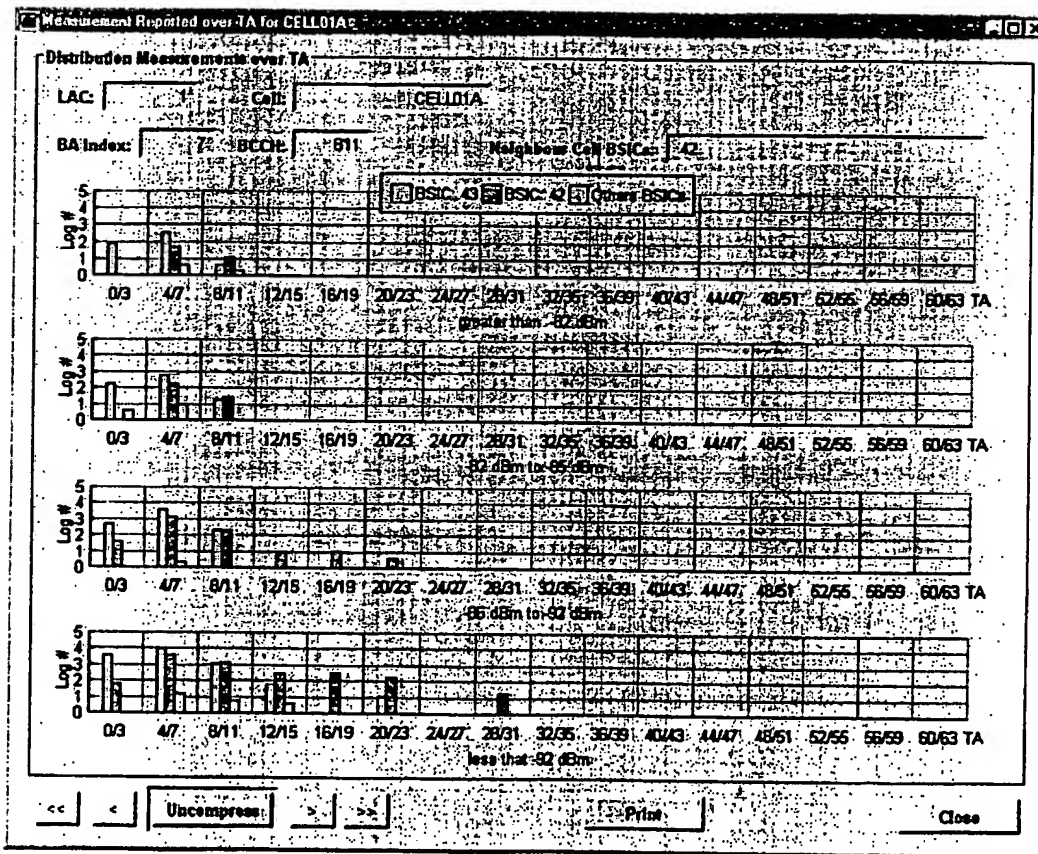 Measurement Reported over TA for CELL01A
Distribution Measurements over TA
LAC: 1 Cell: CELL01A
BA Index: 7 BCCH: 811 Neighbour Cell BSICs: 42
BSIC: 43 BSIC: 42 Others BSICs
Log #
5
4
3
2
1
0
0/3 4/7 8/11 12/15 16/19 20/23 24/27 28/31 32/35 36/39 40/43 44/47 48/51 52/55 56/59 60/63 TA
greater than -82 dBm
Log #
5
4
3
2
1
0
0/3 4/7 8/11 12/15 16/19 20/23 24/27 28/31 32/35 36/39 40/43 44/47 48/51 52/55 56/59 60/63 TA
-82 dBm to -85 dBm
Log #
5
4
3
2
1
0
0/3 4/7 8/11 12/15 16/19 20/23 24/27 28/31 32/35 36/39 40/43 44/47 48/51 52/55 56/59 60/63 TA
-86 dBm to -92 dBm
Log #
5
4
3
2
1
0
0/3 4/7 8/11 12/15 16/19 20/23 24/27 28/31 32/35 36/39 40/43 44/47 48/51 52/55 56/59 60/63 TA
less that -92 dBm
<< < Uncompress > >> Print Close